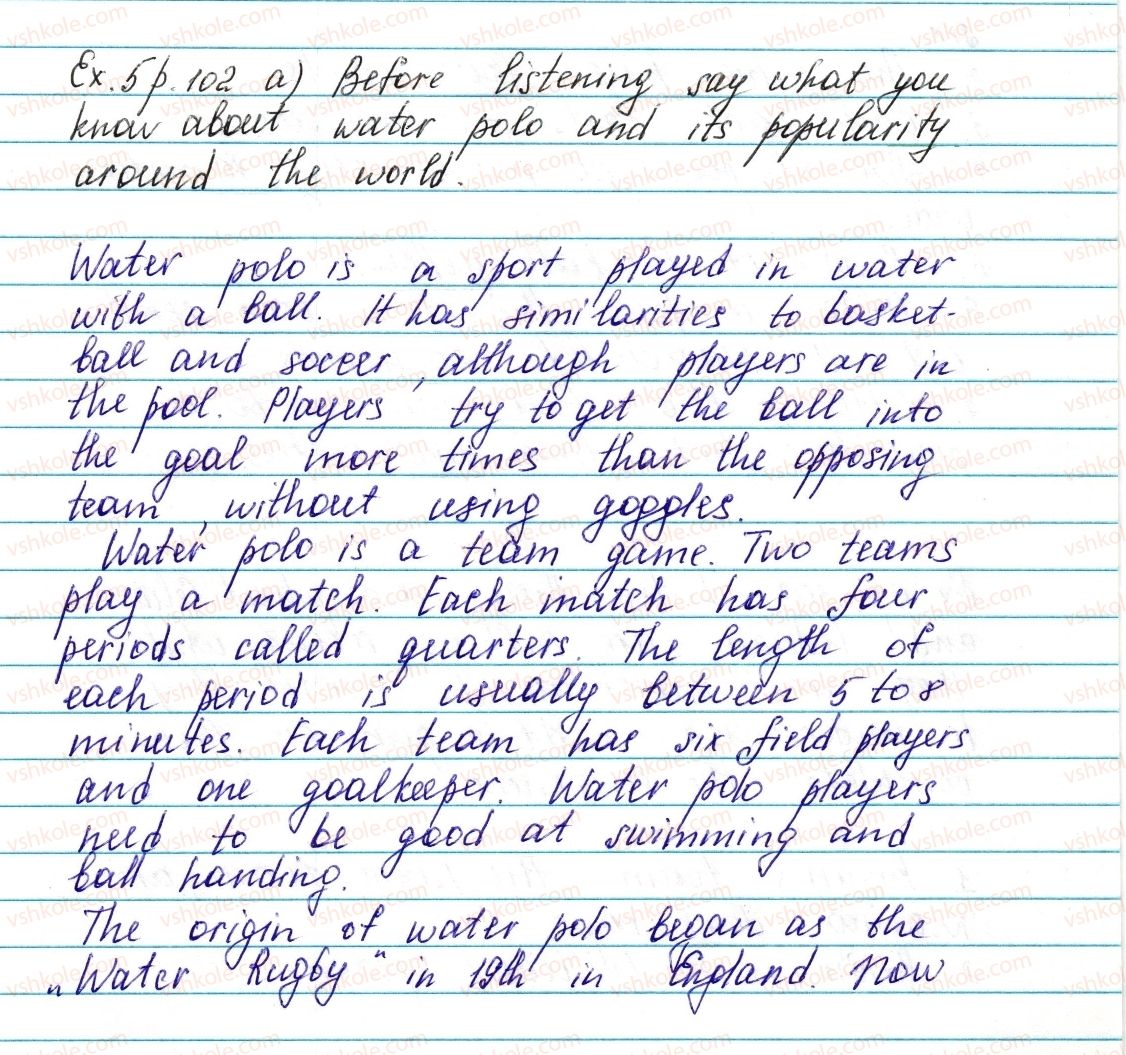 Ex. 5 p. 102 a) Before listening say what you
know about water polo and its popularity
around the world.
Water polo is a sport played in water
with a ball. It has similarities to basket-
ball and soccer, although players are in
the pool. Players try to get the ball into
the goal more times than the opposing
team, without using goggles.
Water polo is a team game. Two teams
play a match. Each match has four
periods called quarters. The length of
each period is usually between 5 to 8
minutes. Each team has six field players
and one goalkeeper. Water polo players
need to be good at swimming and
ball handing.
The origin of water polo began as the
„Water Rugby“ in 19th in England. Now
vshkole.com